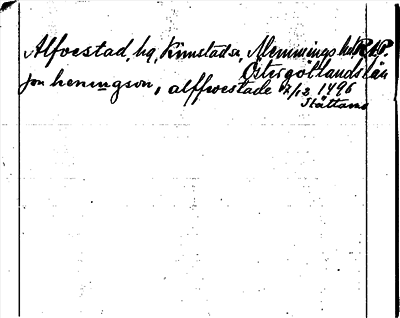 Alfvestad, hg, Kimstad sn, Memmings hd
Östergötlands län
jon heningson, alffwestade 9/12 1496
Stättans